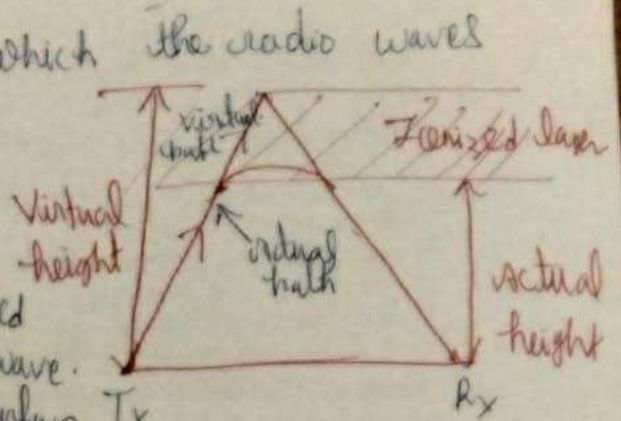 which the radio waves
virtual
path
Ionized layer
Virtual
height
actual
path
actual
height
ed
wave.
Tx
Rx